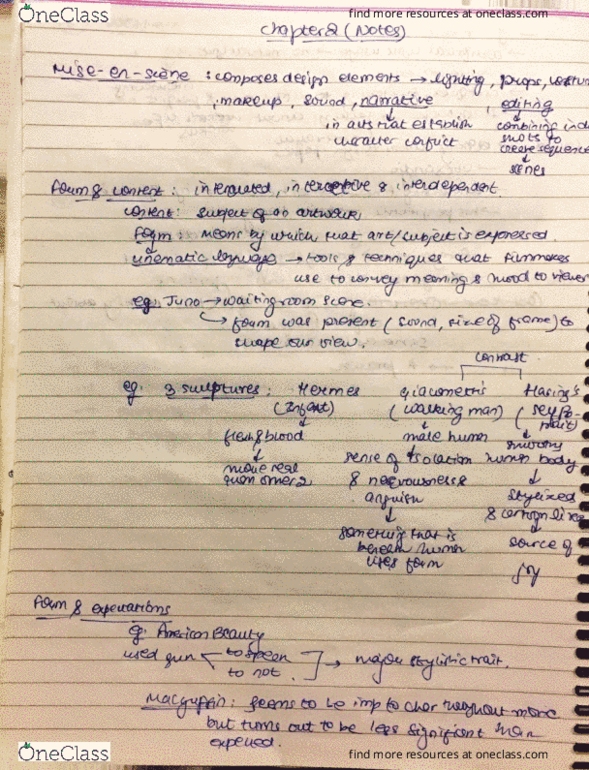 OneClass
find more resources at oneclass.com
Chapter 2 (Notes)
Mise-en-scène : composes design elements → lighting, props, costum
, makeup, sound, narrative , editing
in acts that establish combining ind
character conflict shots to
create sequence
scenes
Form & content : integrated, interceptive & interdependent.
content: subject of an artwork,
Form : means by which that art/subject is expressed.
cinematic language → tools & techniques that filmmakers
use to convey meaning & mood to viewer
eg: Juno → waiting room scene.
form was present (sound, size of frame) to
shape our view.
contrast
eg. 3 sculptures : Hermes Giacometti's Haring's
(Infant) (walking man) (self po-
trait)
flesh & blood male human human body
more real sense of isolation
than other 2 & narrowness & stylized
anguish & cartoon like
something that is source of
beneath human
lies form joy
Form & expectations
eg. American Beauty
used gun to speak major stylistic trait.
to not
Macguffin : seems to be imp to char throughout movie
but turns out to be less significant than
expected.
OneClass
find more resources at oneclass.com